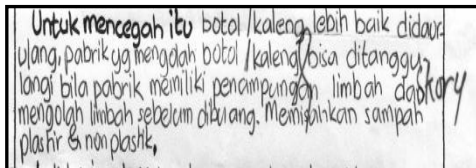 Untuk mencegah itu botol/kaleng lebih baik didaur-
ulang, pabrik yg mengolah botol/kaleng bisa ditanggu-
langi bila pabrik memiliki penampungan limbah dan
mengolah limbah sebelum dibuang. Memisahkan sampah
plastir & non plastik,